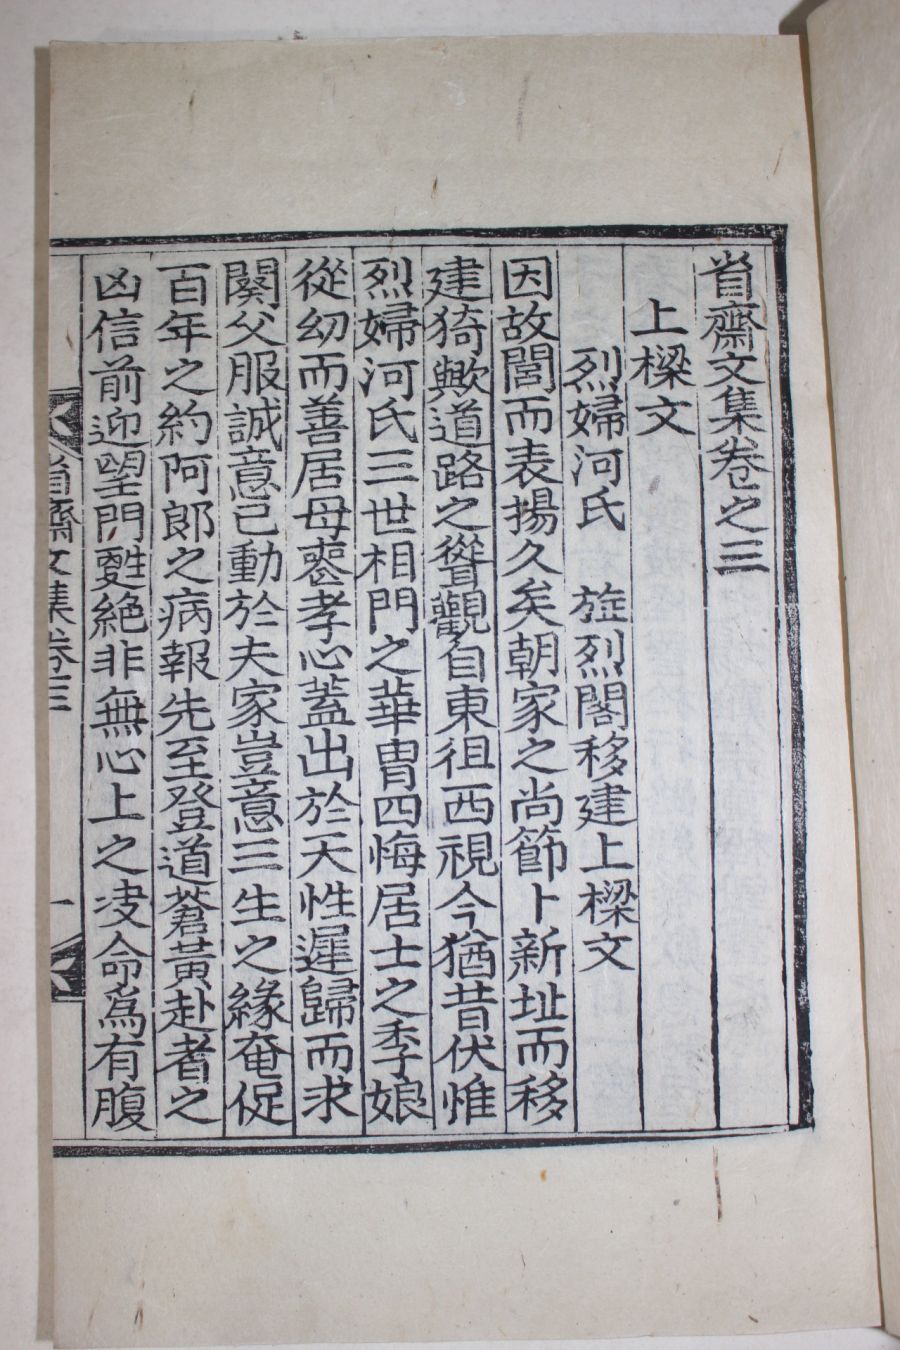 省齋文集卷之三
上樑文
烈婦河氏 旌烈閣移建上樑文
因故閭而表揚久矣朝家之尚節卜新址而移
建猗歟道路之聳觀自東徂西視今猶昔伏惟
烈婦河氏三世相門之華胄四悔居士之季娘
從幼而善居母喪孝心蓋出於天性遲歸而求
闋父服誠意已動於夫家豈意三生之緣奄促
百年之約阿郞之病報先至登道蒼黃赴者之
凶信前迎望門甦絶非無心上之決命爲有腹
省齋文集卷三
一